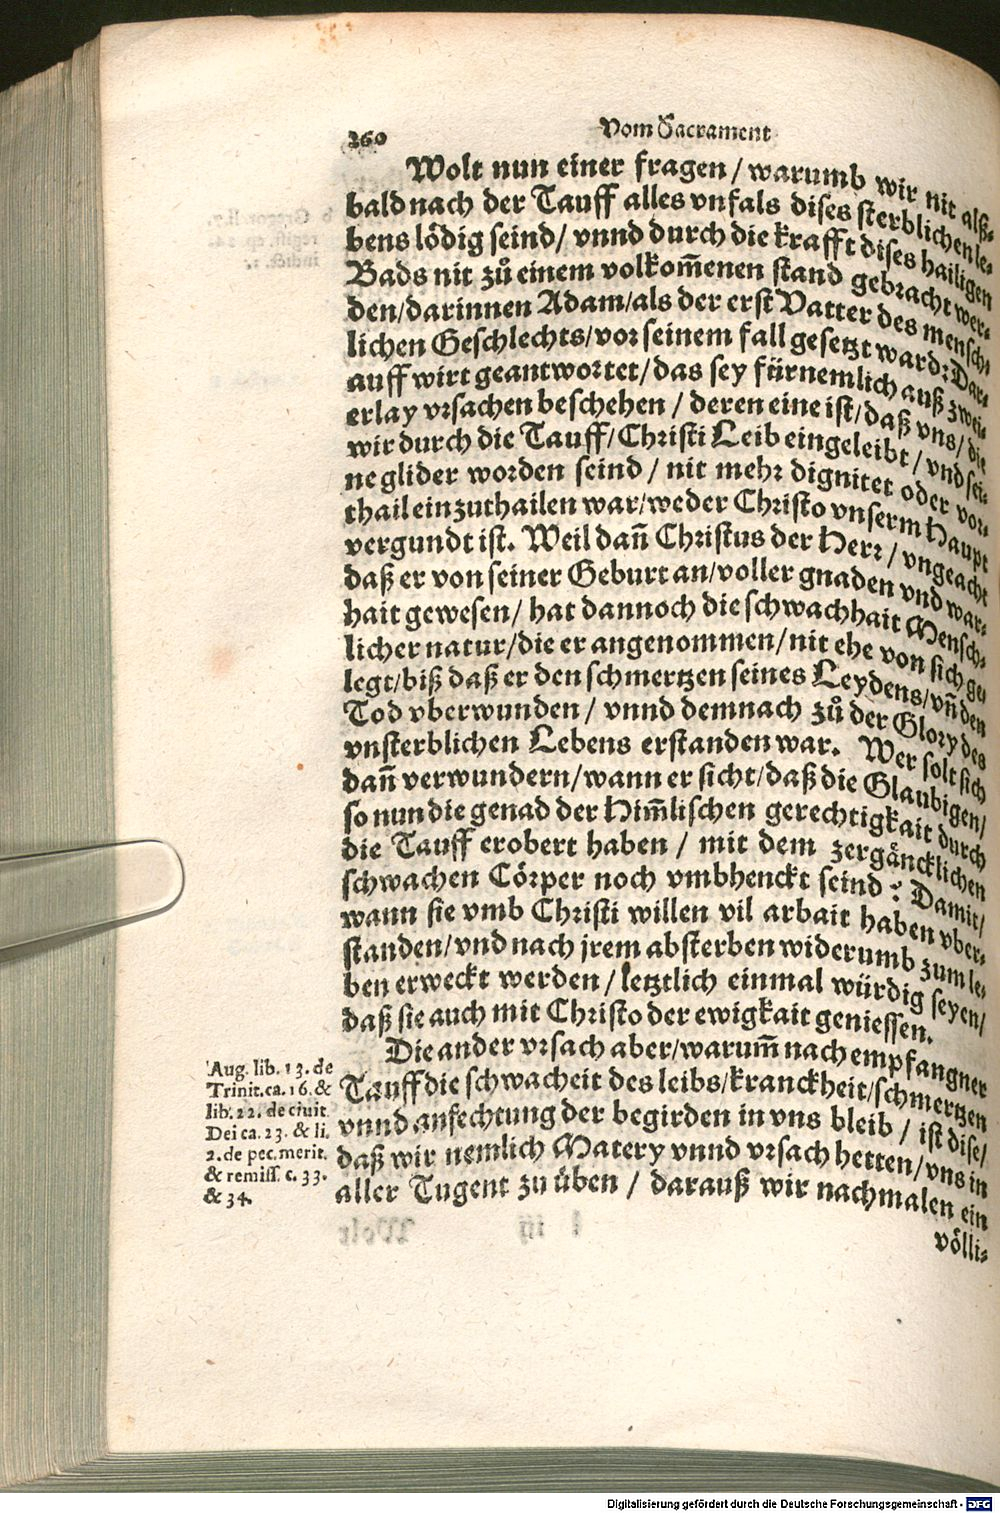 260 Vom Sacrament
Wolt nun einer fragen / warumb wir nit alß-
bald nach der Tauff alles vnfals dises sterblichen le-
bens lödig seind / vnnd durch die krafft dises hailigen
Bads nit zů einem volkom̃enen stand gebracht wer-
den / darinnen Adam / als der erst Vatter des mensch-
lichen Geschlechts / vor seinem fall gesetzt ward: Dar-
auff wirt geantwortet / das sey fürnemlich auß zwei-
erlay vrsachen beschehen / deren eine ist / daß vns / die
wir durch die Tauff / Christi Leib eingeleibt / vnd sei-
ne glider worden seind / nit mehr dignitet oder vor-
thail einzuthailen war / weder Christo vnserm Haupt
vergundt ist. Weil dañ Christus der Herr / vngeacht
daß er von seiner Geburt an / voller gnaden vnd war-
hait gewesen / hat dannoch die schwachhait Mensch-
licher natur / die er angenommen / nit ehe von sich ge-
legt / biß daß er den schmertzen seines Leydens / vñ den
Tod vberwunden / vnnd demnach zů der Glory des
vnsterblichen Lebens erstanden war. Wer solt sich
dañ verwundern / wann er sicht / daß die Glaubigen /
so nun die genad der Him̃lischen gerechtigkait durch
die Tauff erobert haben / mit dem zergäncklichen
schwachen Cörper noch vmbhenckt seind: Damit /
wann sie vmb Christi willen vil arbait haben vber-
standen / vnd nach jrem absterben widerumb zum le-
ben erweckt werden / letztlich einmal würdig seyen /
daß sie auch mit Christo der ewigkait geniessen.
Die ander vrsach aber / warum̃ nach empfangner
Tauff die schwacheit des leibs / kranckheit / schmertzen
vnnd anfechtung der begirden in vns bleib / ist dise /
daß wir nemlich Matery vnnd vrsach hetten / vns in
aller Tugent zu üben / darauß wir nachmalen ein
völli-
Aug. lib. 13. de
Trinit. ca. 16. &
lib. 22. de ciuit.
Dei ca. 23. & li.
2. de pec. merit.
& remiss. c. 33.
& 34.
Digitalisierung gefördert durch die Deutsche Forschungsgemeinschaft - DFG